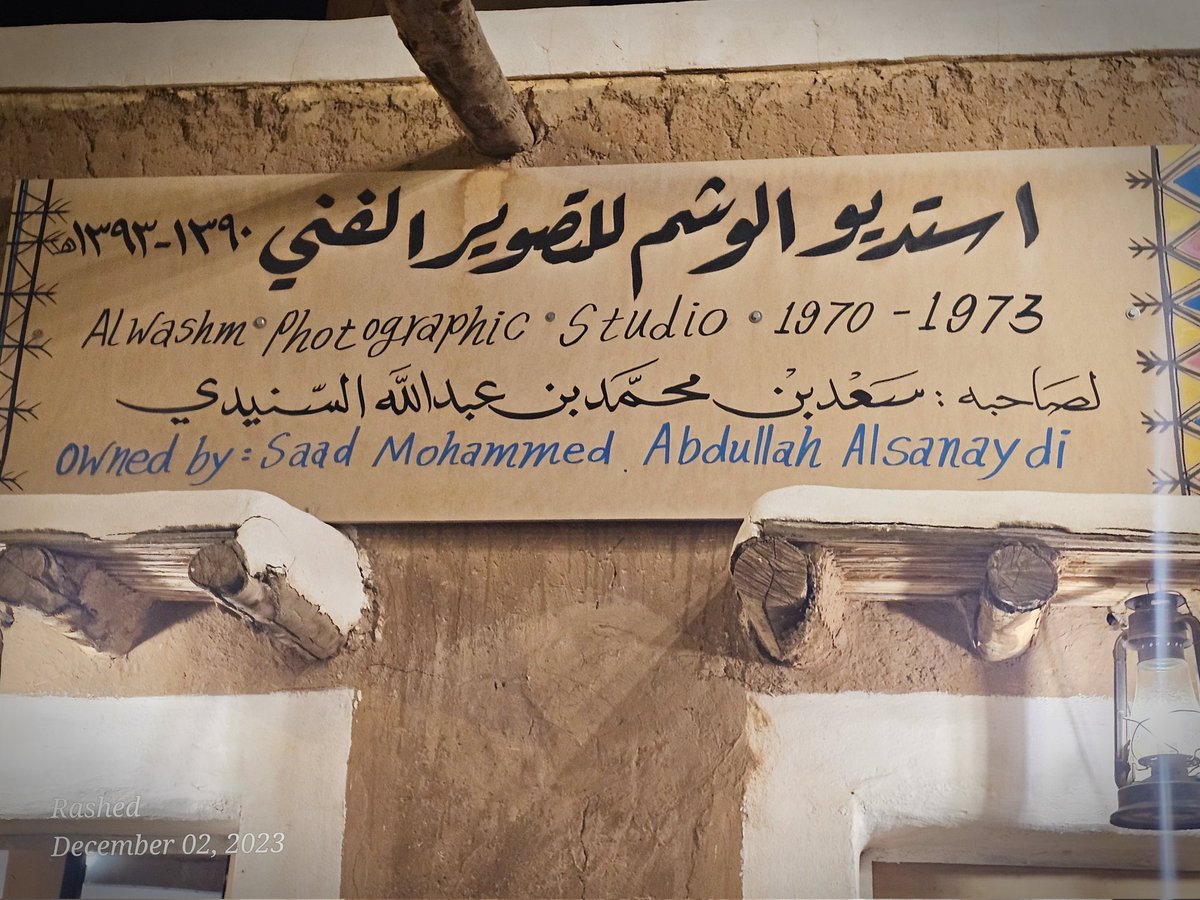 استديو الوشم للتصوير الفني ١٣٩٠-١٣٩٣هـ
AlWashm • Photographic • Studio • 1970 - 1973
لصاحبه : سَعْد بنْ محمَّد بن عبداللَّه السّنيدي
Owned by : Saad Mohammed . Abdullah Alsanaydi
Rashed
December 02, 2023